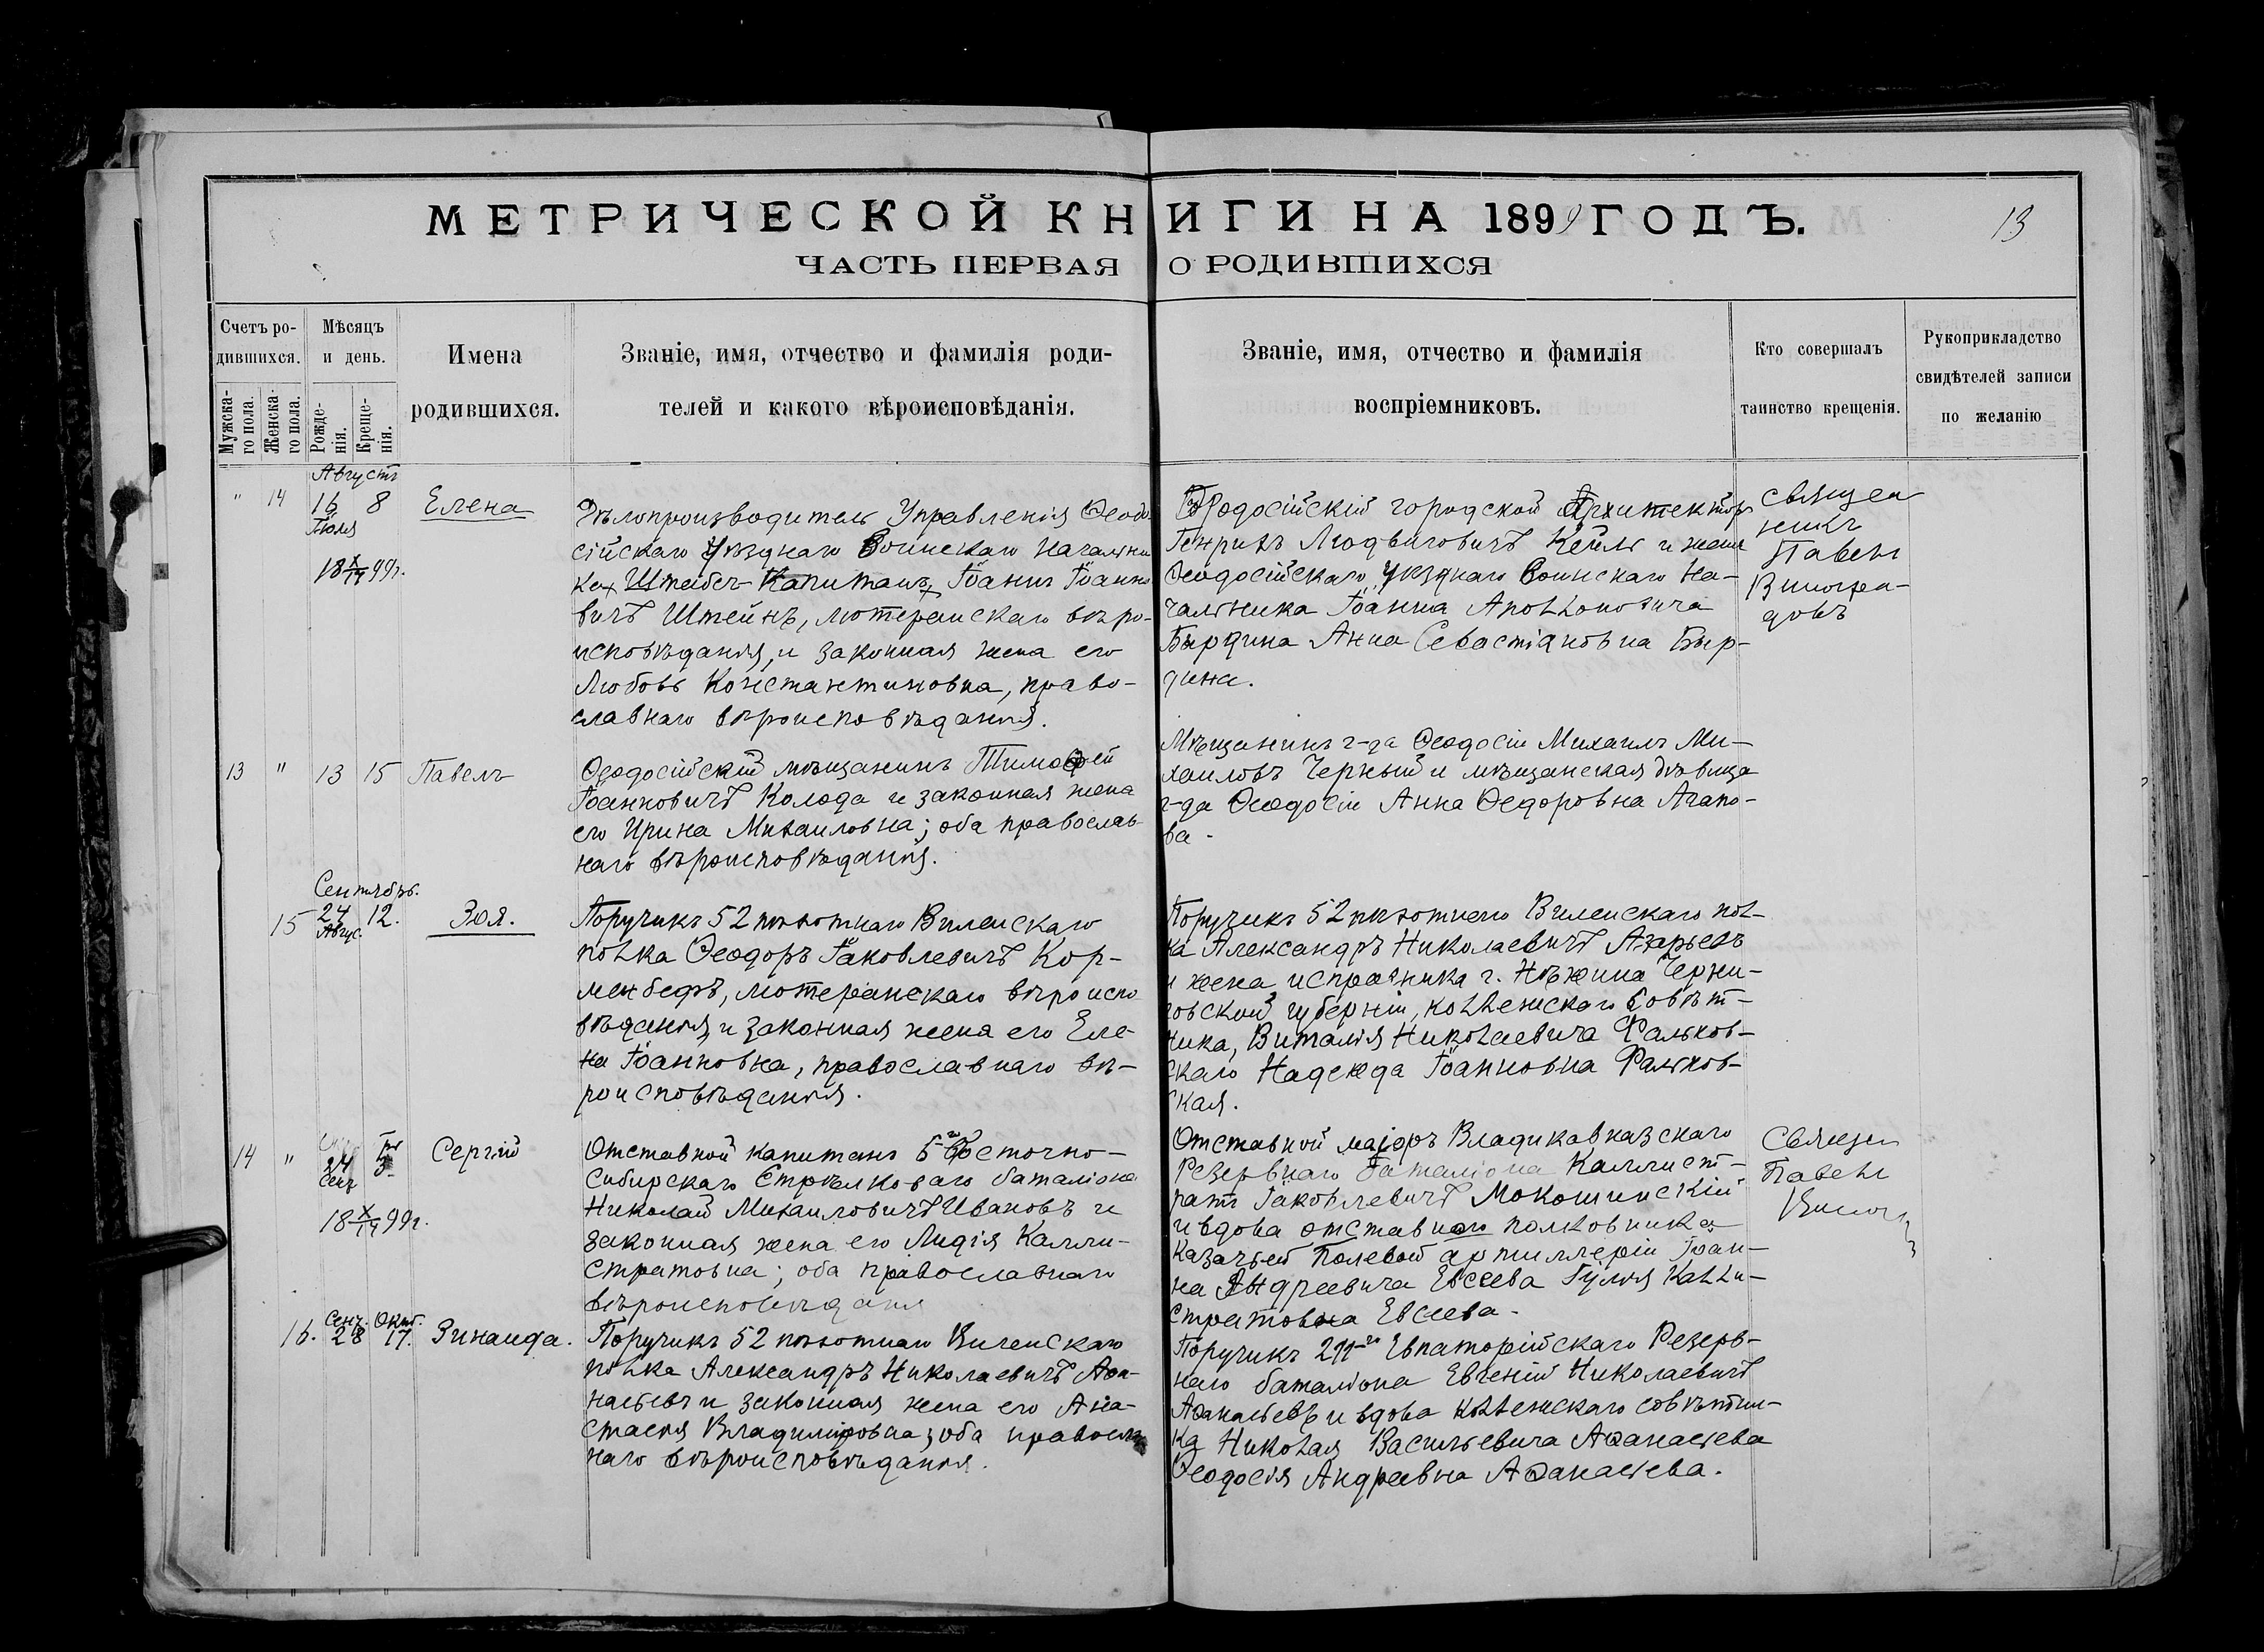 МЕТРИЧЕСКОЙ КНИГИ НА 1899 ГОДЪ.
13
ЧАСТЬ ПЕРВАЯ О РОДИВШИХСЯ
Счетъ родившихся.
Мужскаго пола.
Женскаго пола.
Мѣсяцъ и день.
Рожденія.
Крещенія.
Имена родившихся.
Званіе, имя, отчество и фамилія роди-
телей и какого вѣроисповѣданія.
Званіе, имя, отчество и фамилія
воспріемниковъ.
Кто совершалъ
таинство крещенія.
Рукоприкладство
свидѣтелей записи
по желанію
Августъ
" 14 16 8 Елена
Іюля
18 X/19 99г.
Дѣлопроизводитель Управленія Ѳеодо-
сійскаго Уѣзднаго Воинскаго Начальни
ка Штабсъ-Капитанъ Іоаннъ Іоанно
вичъ Штейнъ, лютеранскаго вѣро-
исповѣданія, и законная жена его
Любовь Константиновна, право-
славнаго вѣроисповѣданія.
Ѳеодосійскій городской Архитекторъ
Генрихъ Людвиговичъ Кейль и жена
Ѳеодосійскаго Уѣзднаго Воинскаго На-
чальника Іоанна Аполлоновича
Бырдина Анна Севастіановна Быр-
дина.
Священ
никъ
Павелъ
Виногра-
довъ
13 " 13 15 Павелъ
Ѳеодосійскій мѣщанинъ Тимоѳей
Іоанновичъ Колода и законная жена
его Ирина Михаиловна; оба православ
наго вѣроисповѣданія.
Мѣщанинъ г-да Ѳеодосіи Михаилъ Ми-
хаиловъ Черный и мѣщанская дѣвица
г-да Ѳеодосіи Анна Ѳедоровна Агапо-
ва.
Сентябрь.
15 24 12. Зоя.
Авгус.
Поручикъ 52 пѣхотнаго Виленскаго
полка Ѳеодоръ Іаковлевичъ Кор-
менбефъ, лютеранскаго вѣроиспо
вѣданія, и законная жена его Еле-
на Іоанновна, православнаго вѣ-
роисповѣданія.
Поручикъ 52 пѣхотнаго Виленскаго пол-
ка Александръ Николаевичъ Азарьевъ
и жена исправника г. Нѣжина Черни-
говской губерніи, коллежскаго Совѣт-
ника, Виталія Николаевича Фальков-
скаго Надежда Іоанновна Фальков-
ская.
14 " 24 3 Сергій
Сент
18 X/19 99г.
Отставной капитанъ 5 Восточно-
Сибирскаго Стрѣлковаго баталіона
Николай Михаиловичъ Ивановъ и
законная жена его Лидія Калли-
стратовна; оба православнаго
вѣроисповѣданія
Отставной маіоръ Владикавказскаго
Резервнаго баталіона Каллист-
ратъ Іаковлевичъ Мокошинскій
и вдова отставного полковника
Казачьей Полевой артиллеріи Іоан-
на Андреевича Евсеева Іулія Калли-
стратовна Евсеева.
Священ
Павелъ
Сент. Октб.
16. 28 17. Зинаида.
Поручикъ 52 пѣхотнаго Виленскаго
полка Александръ Николаевичъ Аѳа-
насьевъ и законная жена его Ана-
стасія Владиміровна; оба православ
наго вѣроисповѣданія.
Поручикъ 211-го Евпаторійскаго Резерв-
наго баталіона Евгеній Николаевичъ
Аѳанасьевъ и вдова коллежскаго совѣтни-
ка Николая Васильевича Аѳанасьева
Ѳеодосія Андреевна Аѳанасьева.